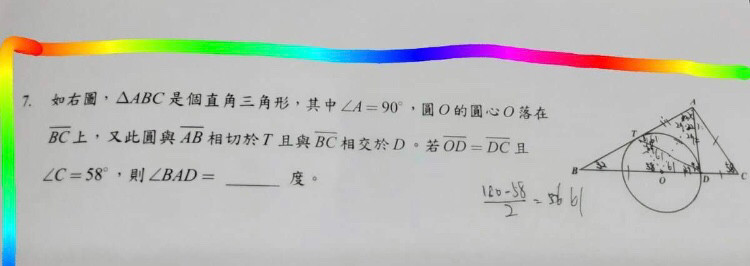 7. 如右圖，△ABC 是個直角三角形，其中∠A=90°，圓O的圓心O落在
BC上，又此圓與AB相切於T且與BC相交於D。若OD=DC且
∠C=58°，則∠BAD= ______ 度。
A
T
B
O
D
C
180-58
2
= 56 61